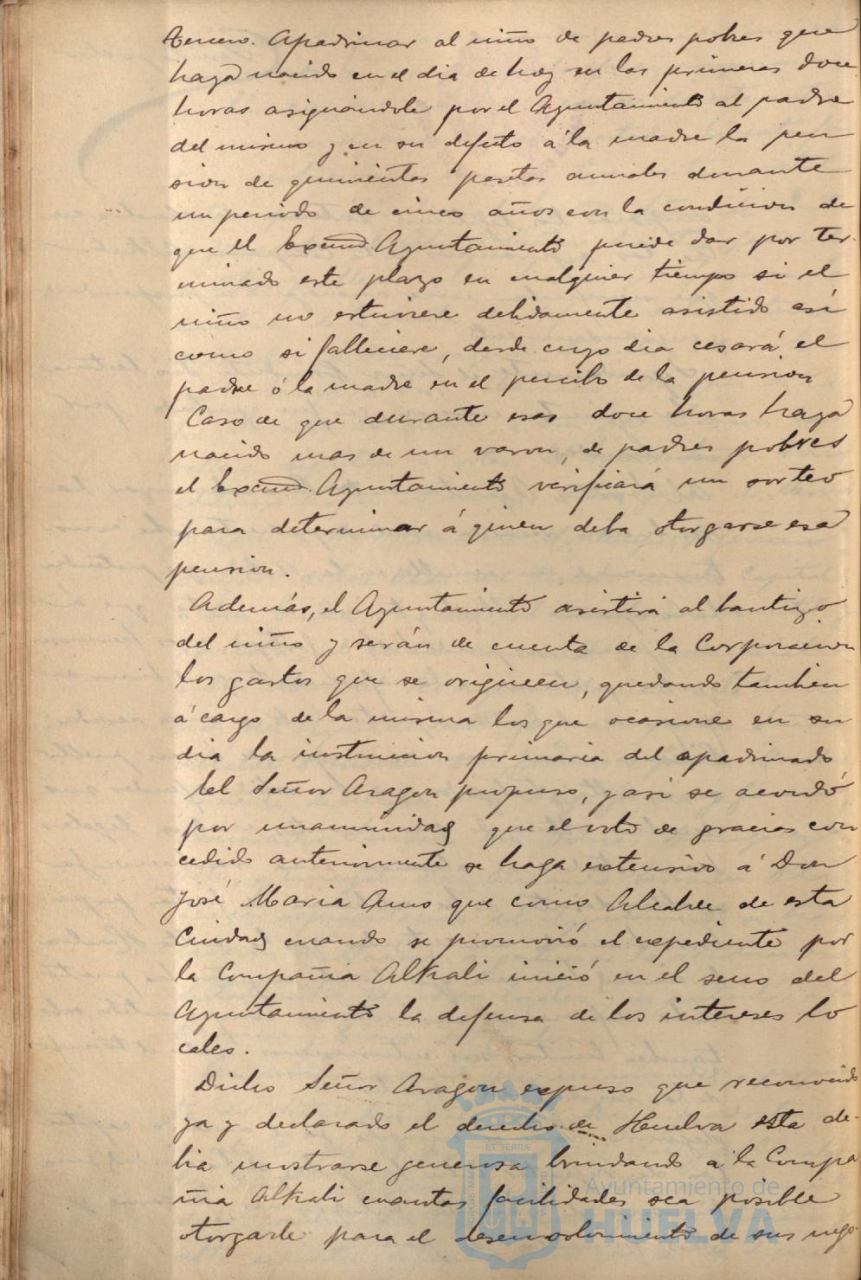 tercero. Apadrinar al niño de padres pobres que
haya nacido en el dia de hoy en las primeras doce
horas asignándole por el Ayuntamiento al padre
del mismo y en su defecto á la madre la pen
sion de quinientas pesetas anuales durante
un periodo de cinco años con la condicion de
que el Excmo Ayuntamiento puede dar por ter-
minado este plazo en cualquier tiempo si el
niño no estuviere debidamente asistido asi
como si falleciere, desde cuyo dia cesará el
padre ó la madre en el percibo de la pension
Caso de que durante esas doce horas haya
nacido mas de un varon, de padres pobres
el Excmo Ayuntamiento verificará un sorteo
para determinar á quien deba otorgarse esa
pension.
Además, el Ayuntamiento asistirá al bautizo
del niño y serán de cuenta de la Corporacion
los gastos que se originen, quedando tambien
á cargo de la misma los que ocasione en su
dia la instruccion primaria del apadrinado
El Señor Aragon propuso, y asi se acordó
por unanimidad que el voto de gracias con
cedido anteriormente se haga extensivo á Don
José Maria Amo que como Alcalde de esta
Ciudad cuando se promovió el expediente por
la Compañia Alkali inició en el seno del
Ayuntamiento la defensa de los intereses lo
cales.
Dicho Señor Aragon expuso que reconocido
ya y declarado el derecho de Huelva esta de-
bia mostrarse generosa brindando á la Compa
ñia Alkali cuantas facilidades sea posible
otorgarle para el desenvolvimiento de sus nego-
Ayuntamiento de
HUELVA